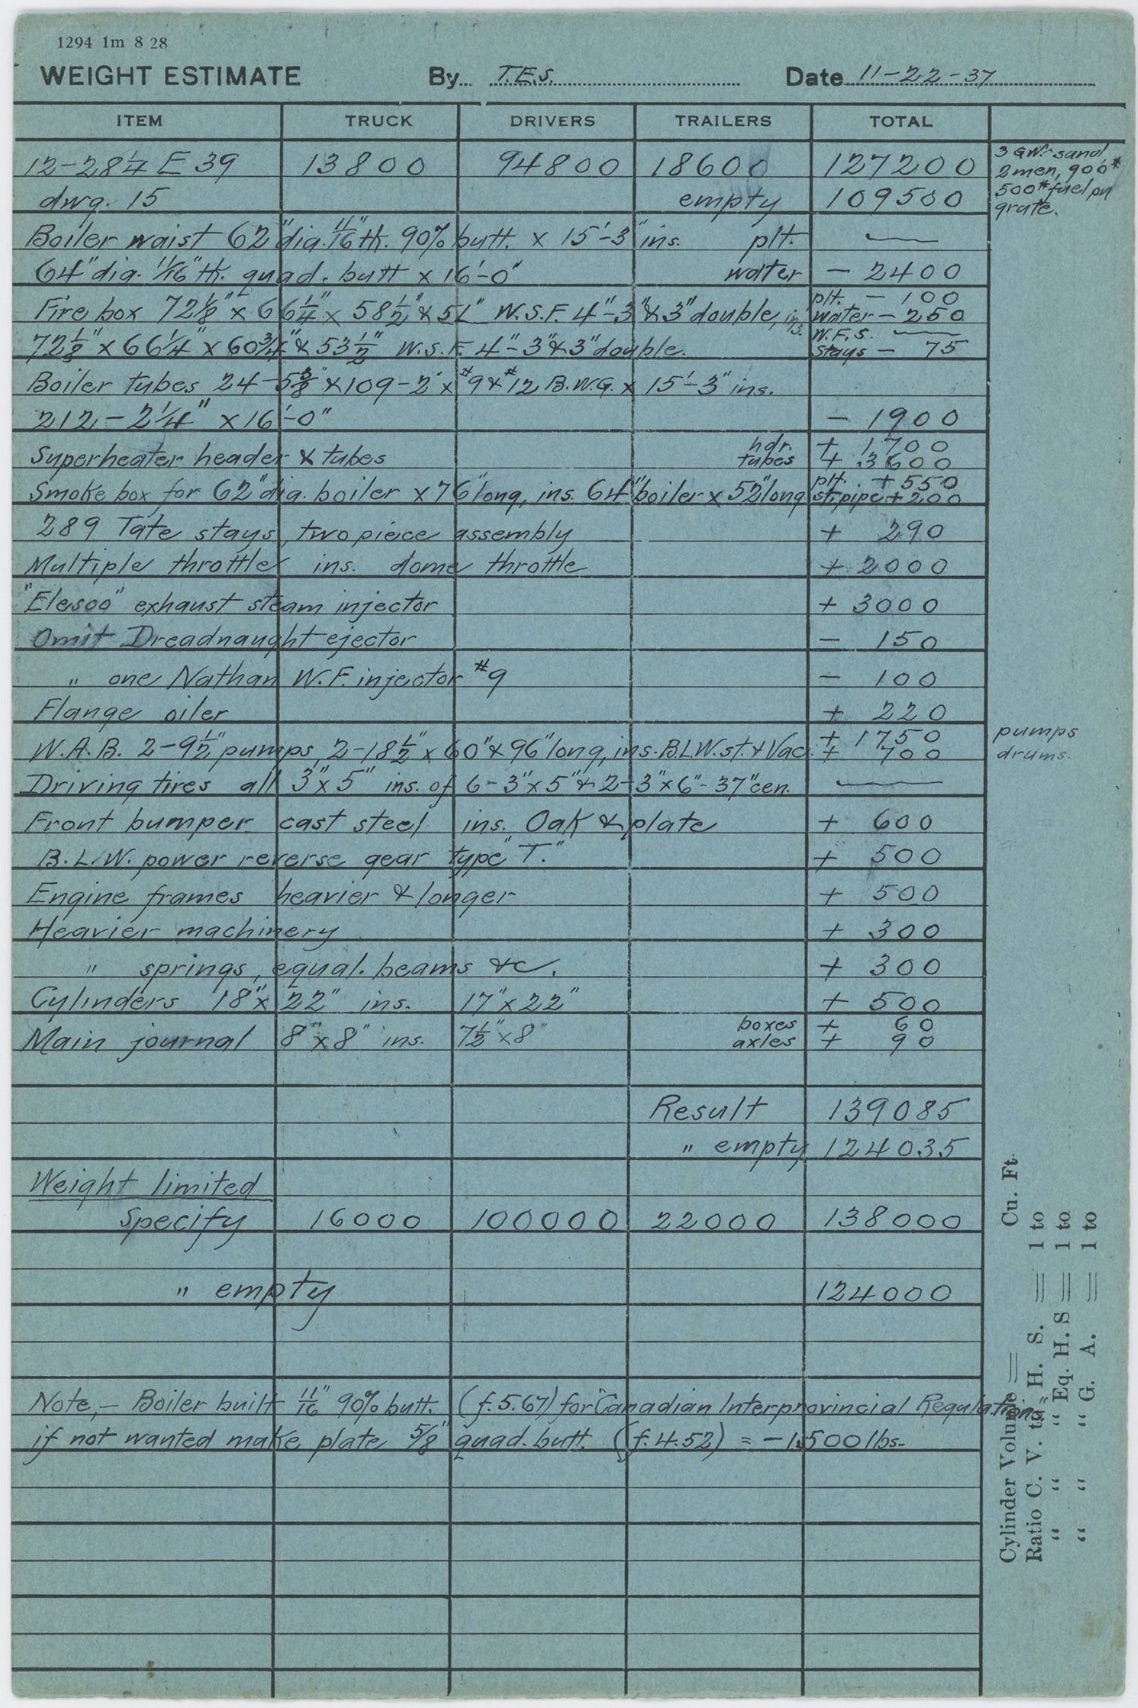 1294 1m 8 28
WEIGHT ESTIMATE By T.E.S. Date 11-22-37
ITEM TRUCK DRIVERS TRAILERS TOTAL
12-28¼ E 39 13800 94800 18600 127200
3 GW. sand,
2 men, 900#
500# fuel on
grate.
dwg. 15 empty 109500
Boiler waist 62" dia. 11/16" th. 90% butt. x 15'-3" ins. plt. —
64" dia. 11/16" th. quad. butt x 16'-0" water - 2400
Fire box 72⅛" x 66¼" x 58½" x 51" W.S.F. 4"-3" & 3" double, ins. plt. - 100
water - 250
72⅛" x 66¼" x 60¾" & 53½" W.S.F. 4"-3" & 3" double. W.F.S. —
stays - 75
Boiler tubes 24-5⅜" x 109-2" x #9 & #12 B.W.G. x 15'-3" ins.
212-2¼" x 16'-0" - 1900
Superheater header & tubes hdr. + 1700
tubes + 3600
Smoke box for 62" dia. boiler x 76" long, ins. 64" boiler x 52" long plt. + 550
st. pipe + 200
289 Tate stays, two pieice assembly + 290
Multiple throttle ins. dome throttle + 2000
"Elesco" exhaust steam injector + 3000
Omit Dreadnaught ejector - 150
" one Nathan W.F. injector #9 - 100
Flange oiler + 220
W.A.B. 2-9½" pumps, 2-18½" x 60" & 96" long, ins. B.L.W. st. & Vac. + 1750 pumps
+ 700 drums.
Driving tires all 3" x 5" ins. of 6-3" x 5" & 2-3" x 6"-37" cen. —
Front bumper cast steel ins. Oak & plate + 600
B.L.W. power reverse gear type "T." + 500
Engine frames heavier & longer + 500
Heavier machinery + 300
" springs, equal. beams &c. + 300
Cylinders 18" x 22" ins. 17" x 22" + 500
Main journal 8" x 8" ins. 7½" x 8" boxes + 60
axles + 90
Result 139085
" empty 124035
Weight limited
Specify 16000 100000 22000 138000
" empty 124000
Note,- Boiler built 11/16" 90% butt. (f. 5.67) for "Canadian Interprovincial Regulations"
if not wanted make plate ⅝" quad. butt. (f. 4.52) = -1500 lbs.
Cylinder Volume = Cu. Ft.
Ratio C. V. to H. S. = 1 to
" " " Eq. H. S = 1 to
" " " G. A. = 1 to